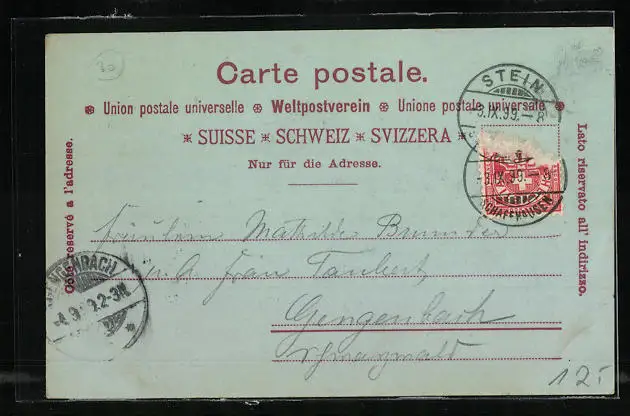 30
Carte postale.
Union postale universelle Weltpostverein Unione postale universale
SUISSE SCHWEIZ SVIZZERA
Nur für die Adresse.
Côté réservé à l'adresse.
Lato riservato all' indirizzo.
STEIN
-3.IX.99.-8
-3.IX.99.-8
SCHAFFHAUSEN
Fräulein Mathilde
Frau Taubert
Gengenbach
Schwarzwald
GENGENBACH
2-3N
12.-